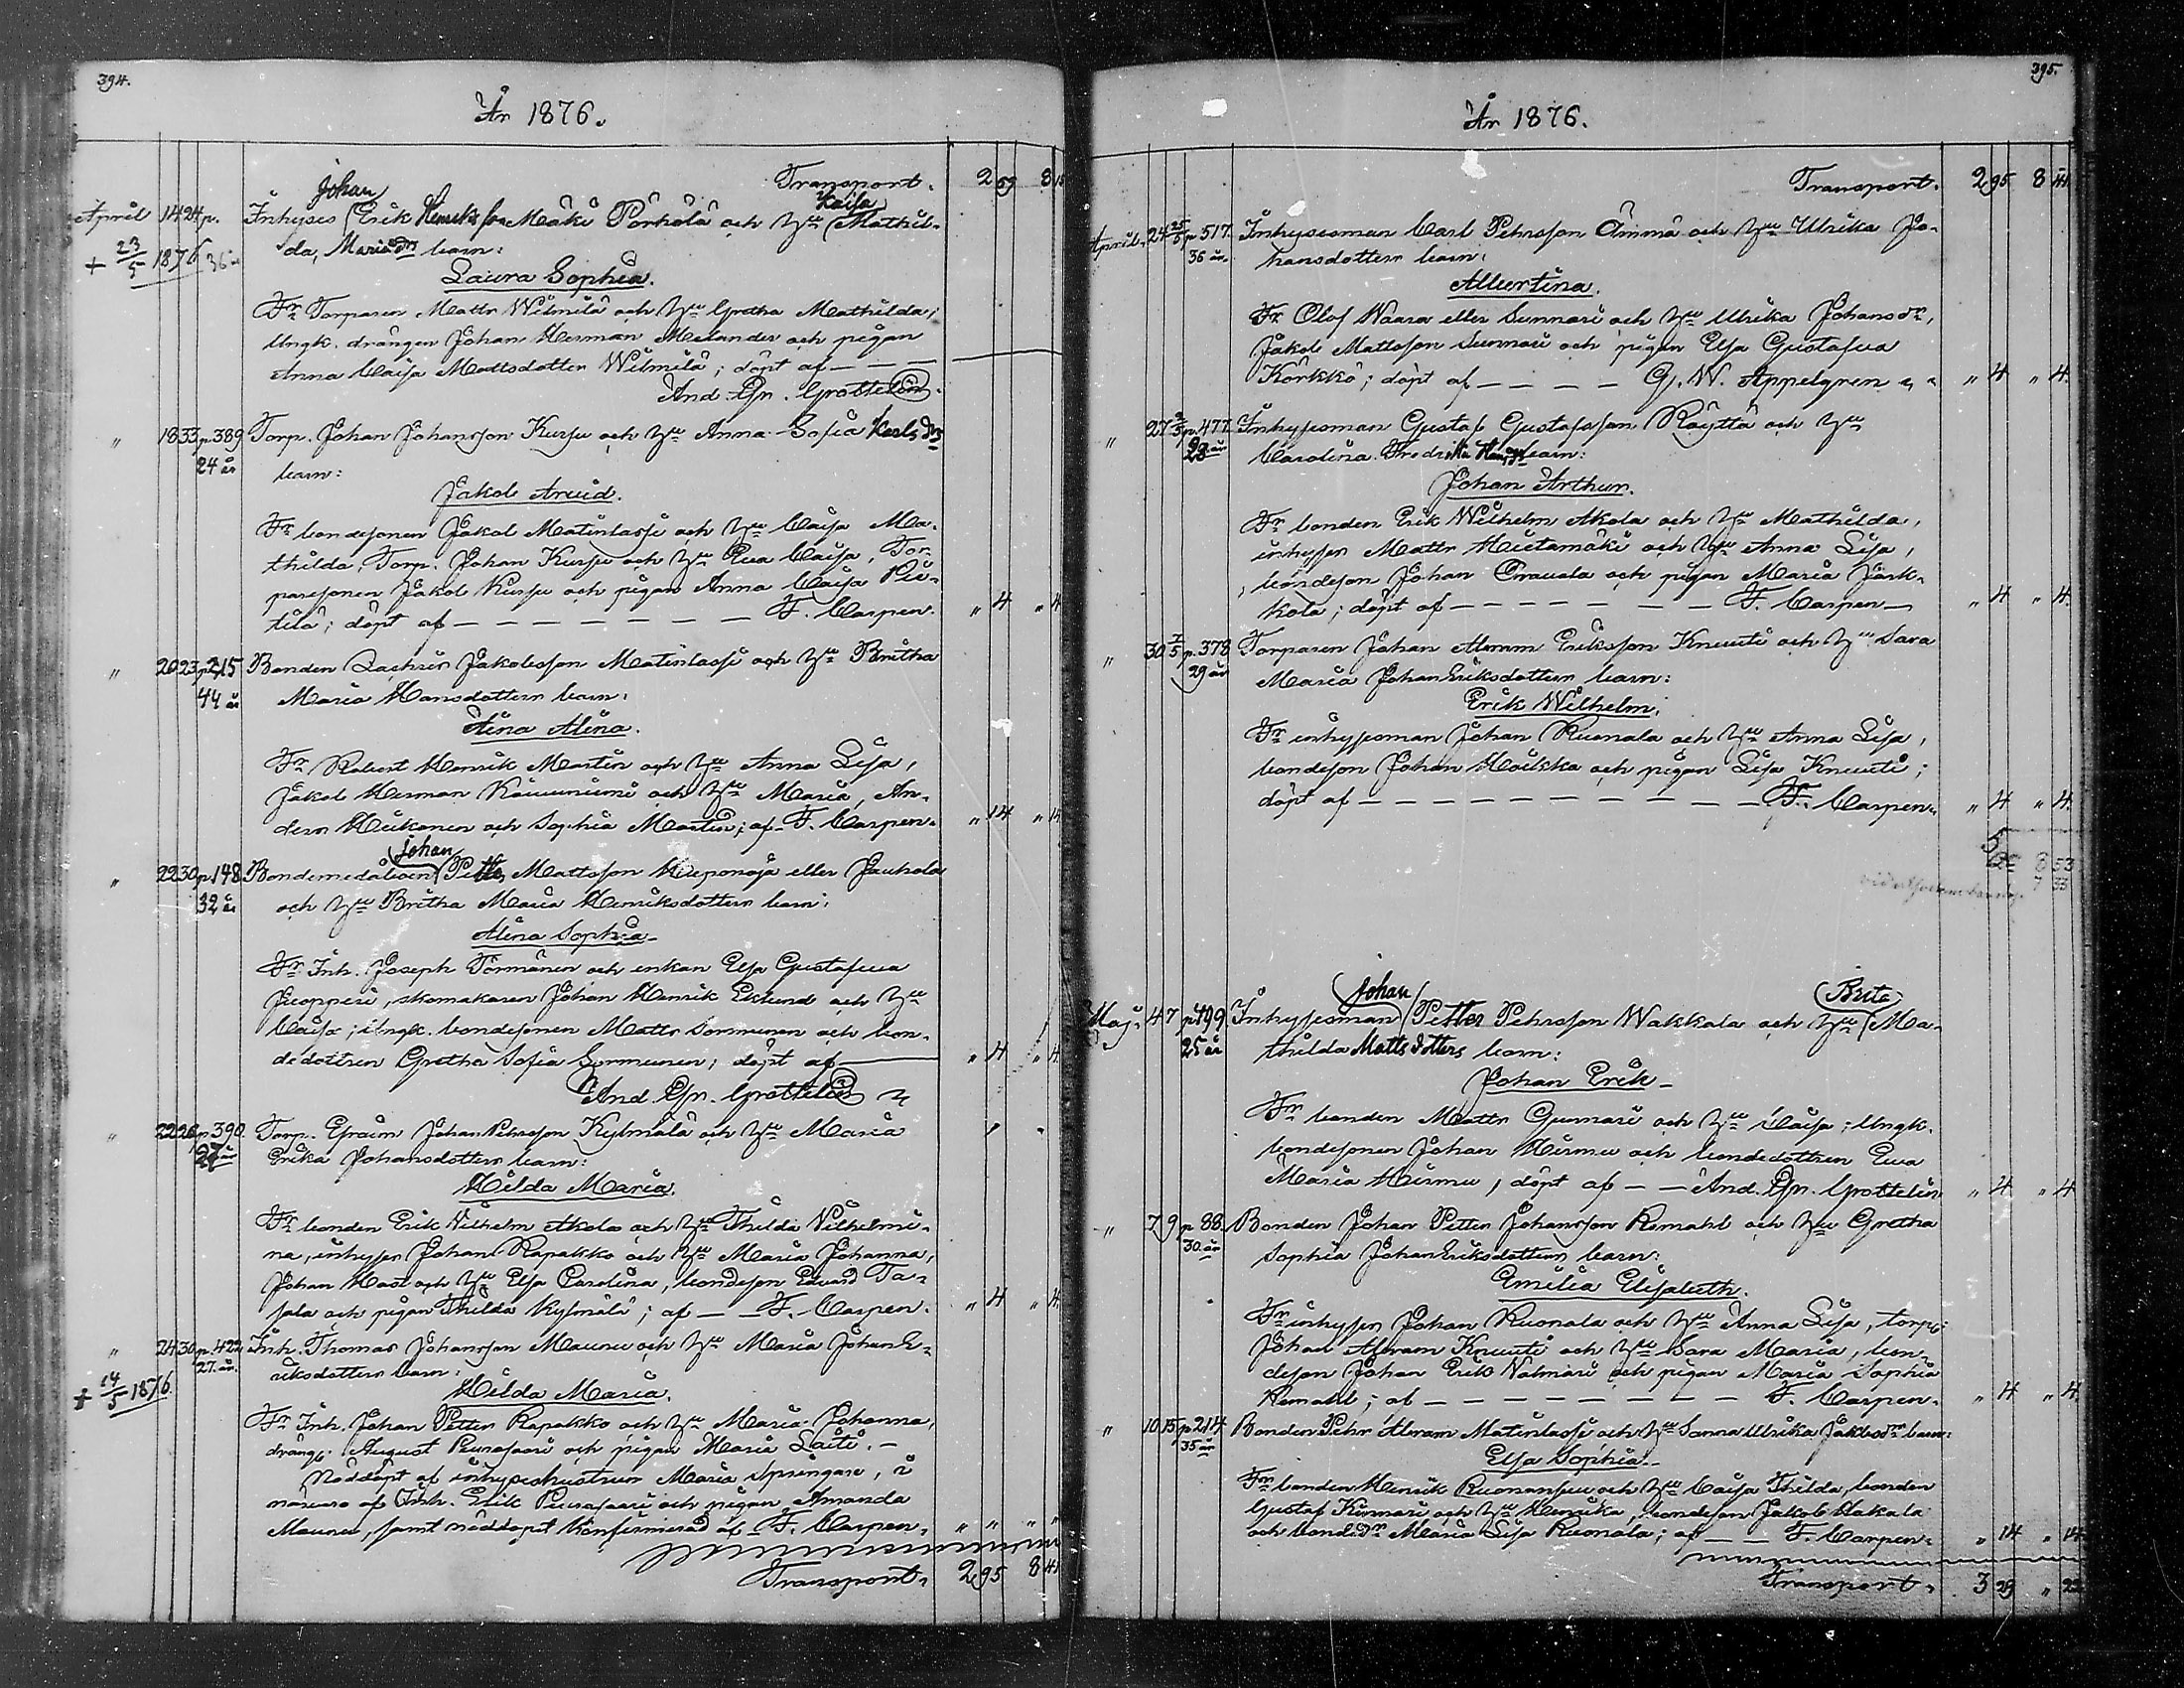 394.
År 1876.
Transport. 2 59 8
Johan Kaisa
April 14 24 p. Inhyses Erik Henriksson Mäki Pörhölä och Hu Mathil-
+ 23/5 1876 36 da, Mariadr barn:
Laura Sophia.
Fr Torparen Matts Wilmilä och Hu Gretha Mathilda;
Ungk. drängen Johan Herman Melander och pigan
Anna Caisa Mattsdotter Wilmilä; döpt af — —
And. Gr. Grottelin.
" 18 33 p 389 Torp. Johan Johansson Kursu och Hu Anna Sofia Karlsdr
24 år barn:
Jakob Arvid.
Fr bondesonen Jakob Matinlassi och Hu Caisa Ma-
thilda, Torp. Johan Kursu och Hu Eva Caisa, Tor-
paresonen Jakob Kursu och pigan Anna Caisa Pie-
tilä; döpt af — — — — — — F. Carpen. " 4 " 4
" 20 23 p 215 Bonden Zachris Jakobsson Matinlassi och Hu Britha
44 år Maria Hansdotters barn:
Aina Alina.
Fr Robert Henrik Martin och Hu Anna Lisa,
Jakob Herman Kaiwuniemi och Hu Maria, An-
ders Heikonen och Sophia Martin; af F. Carpen. " 14 " 14
Johan
" 22 30 p 148 Bondemedåboen Petter Mattsson Heponoja eller Jauhola
32 år och Hu Britha Maria Henriksdotters barn:
Alina Sophia
Fr Inh. Joseph Törmänen och enkan Elsa Gustafva
Juopperi, skomakaren Johan Henrik Eklund och Hu
Caisa; Ungk. bondesonen Matts Sormunen och bon-
dedottren Gretha Sofia Sormunen; döpt af — " 4 " 4
And. Gr. Grottelin
" 22 26 p. 390. Torp. Efraim Johan Pehrsson Kylmälä och Hu Maria
27 år Erika Johansdotters barn:
Hilda Maria.
Fr bonden Erik Wilhelm Akola och Hu Thilda Wilhelmi-
na, inhyses Johan Rapakko och Hu Maria Johanna,
Johan Hast och Hu Elsa Carolina, bondeson Edvard Ta-
pala och pigan Thilda Kylmälä; af — — F. Carpen. " 4 " 4
" 24 30 p. 422 Inh. Thomas Johansson Maunu och Hu Maria JohanE-
27. år. riksdotters barn:
+ 14/5 1876. Hilda Maria.
Fr Inh. Johan Petter Rapakko och Hu Maria Johanna,
dräng. August Peurasaari och pigan Maria Laiti. —
Nöddöpt af inhyseshustrun Maria Springare, i
närvaro af Inh. Erik Peurasaari och pigan Amanda
Maunu, samt nöddopet Konfirmerad af F. Carpen. " " " "
Transport. 2 95 8 41
395.
År 1876.
Transport. 2 95 8 41
April. 24 25/5 p 517. Inhysesman Carl Pehrsson Ämmä och Hu Ulrika Jo-
36 år. hansdotters barn:
Albertina.
Fr Olof Waara eller Sunnari och Hu Ulrika Johansdr,
Jakob Mattsson Sunnari och pigan Elsa Gustafva
Körkkö; döpt af — — — — G. W. Appelgren " 4 " 4.
" 27 2/5 p. 477. Inhysesman Gustaf Gustafsson Räyttä och Hu
23 år Carolina Fredrika barn:
Johan Arthur.
Fr bonden Erik Wilhelm Akola och Hu Mathilda,
inhyses Matts Hietamäki och Hu Anna Lisa,
bondeson Johan Oravala och pigan Maria Jänk-
kälä; döpt af — — — — — — F. Carpen — " 4 " 4.
" 30 7/5 p. 378 Torparen Johan Abram Eriksson Knuuti och Hu Sara
29 år Maria JohanEriksdotters barn:
Erik Wilhelm.
Fr inhysesman Johan Ruonala och Hu Anna Lisa,
bondeson Johan Hoikka och pigan Lisa Knuuti;
döpt af — — — — — — — — — F. Carpen. " 4 " 4.
8 53
7 33
Johan Brita
Maj. 4 7 p 199 Inhysesman Petter Pehrsson Wakkala och Hu Ma-
25 år thilda Mattsdotters barn:
Johan Erik
Fr bonden Matts Gunnari och Hu Caisa; Ungk.
bondesonen Johan Hirmu och bondedottren Eva
Maria Hirmu, döpt af — — And. Gr. Grottelin " 4 " 4
" 7 9 p 88. Bonden Johan Petter Johansson Remahl och Hu Gretha
30. år Sophia JohanEriksdotters barn:
Emilia Elisabeth.
Fr inhyses Johan Ruonala och Hu Anna Lisa, torp:
Johan Abram Knuuti och Hu Sara Maria, bon-
deson Johan Erik Valmari och pigan Maria Sophia
Remahl; af — — — — — — — — F. Carpen. " 4 " 4.
" 10 15 p 214 Bonden Pehr Abram Matinlassi och Hu Sanna Ulrika Jakobsdr barn:
35 år Elsa Sophia.
Fr bonden Henrik Ruonansuu och Hu Caisa Thilda, bonden
Gustaf Kunnari och Hu Henrika, bondeson Jakob Hakala
och bonde dr Maria Lisa Ruonala; af — — F. Carpen. " 14 " 14
Transport. 3 29 " 22